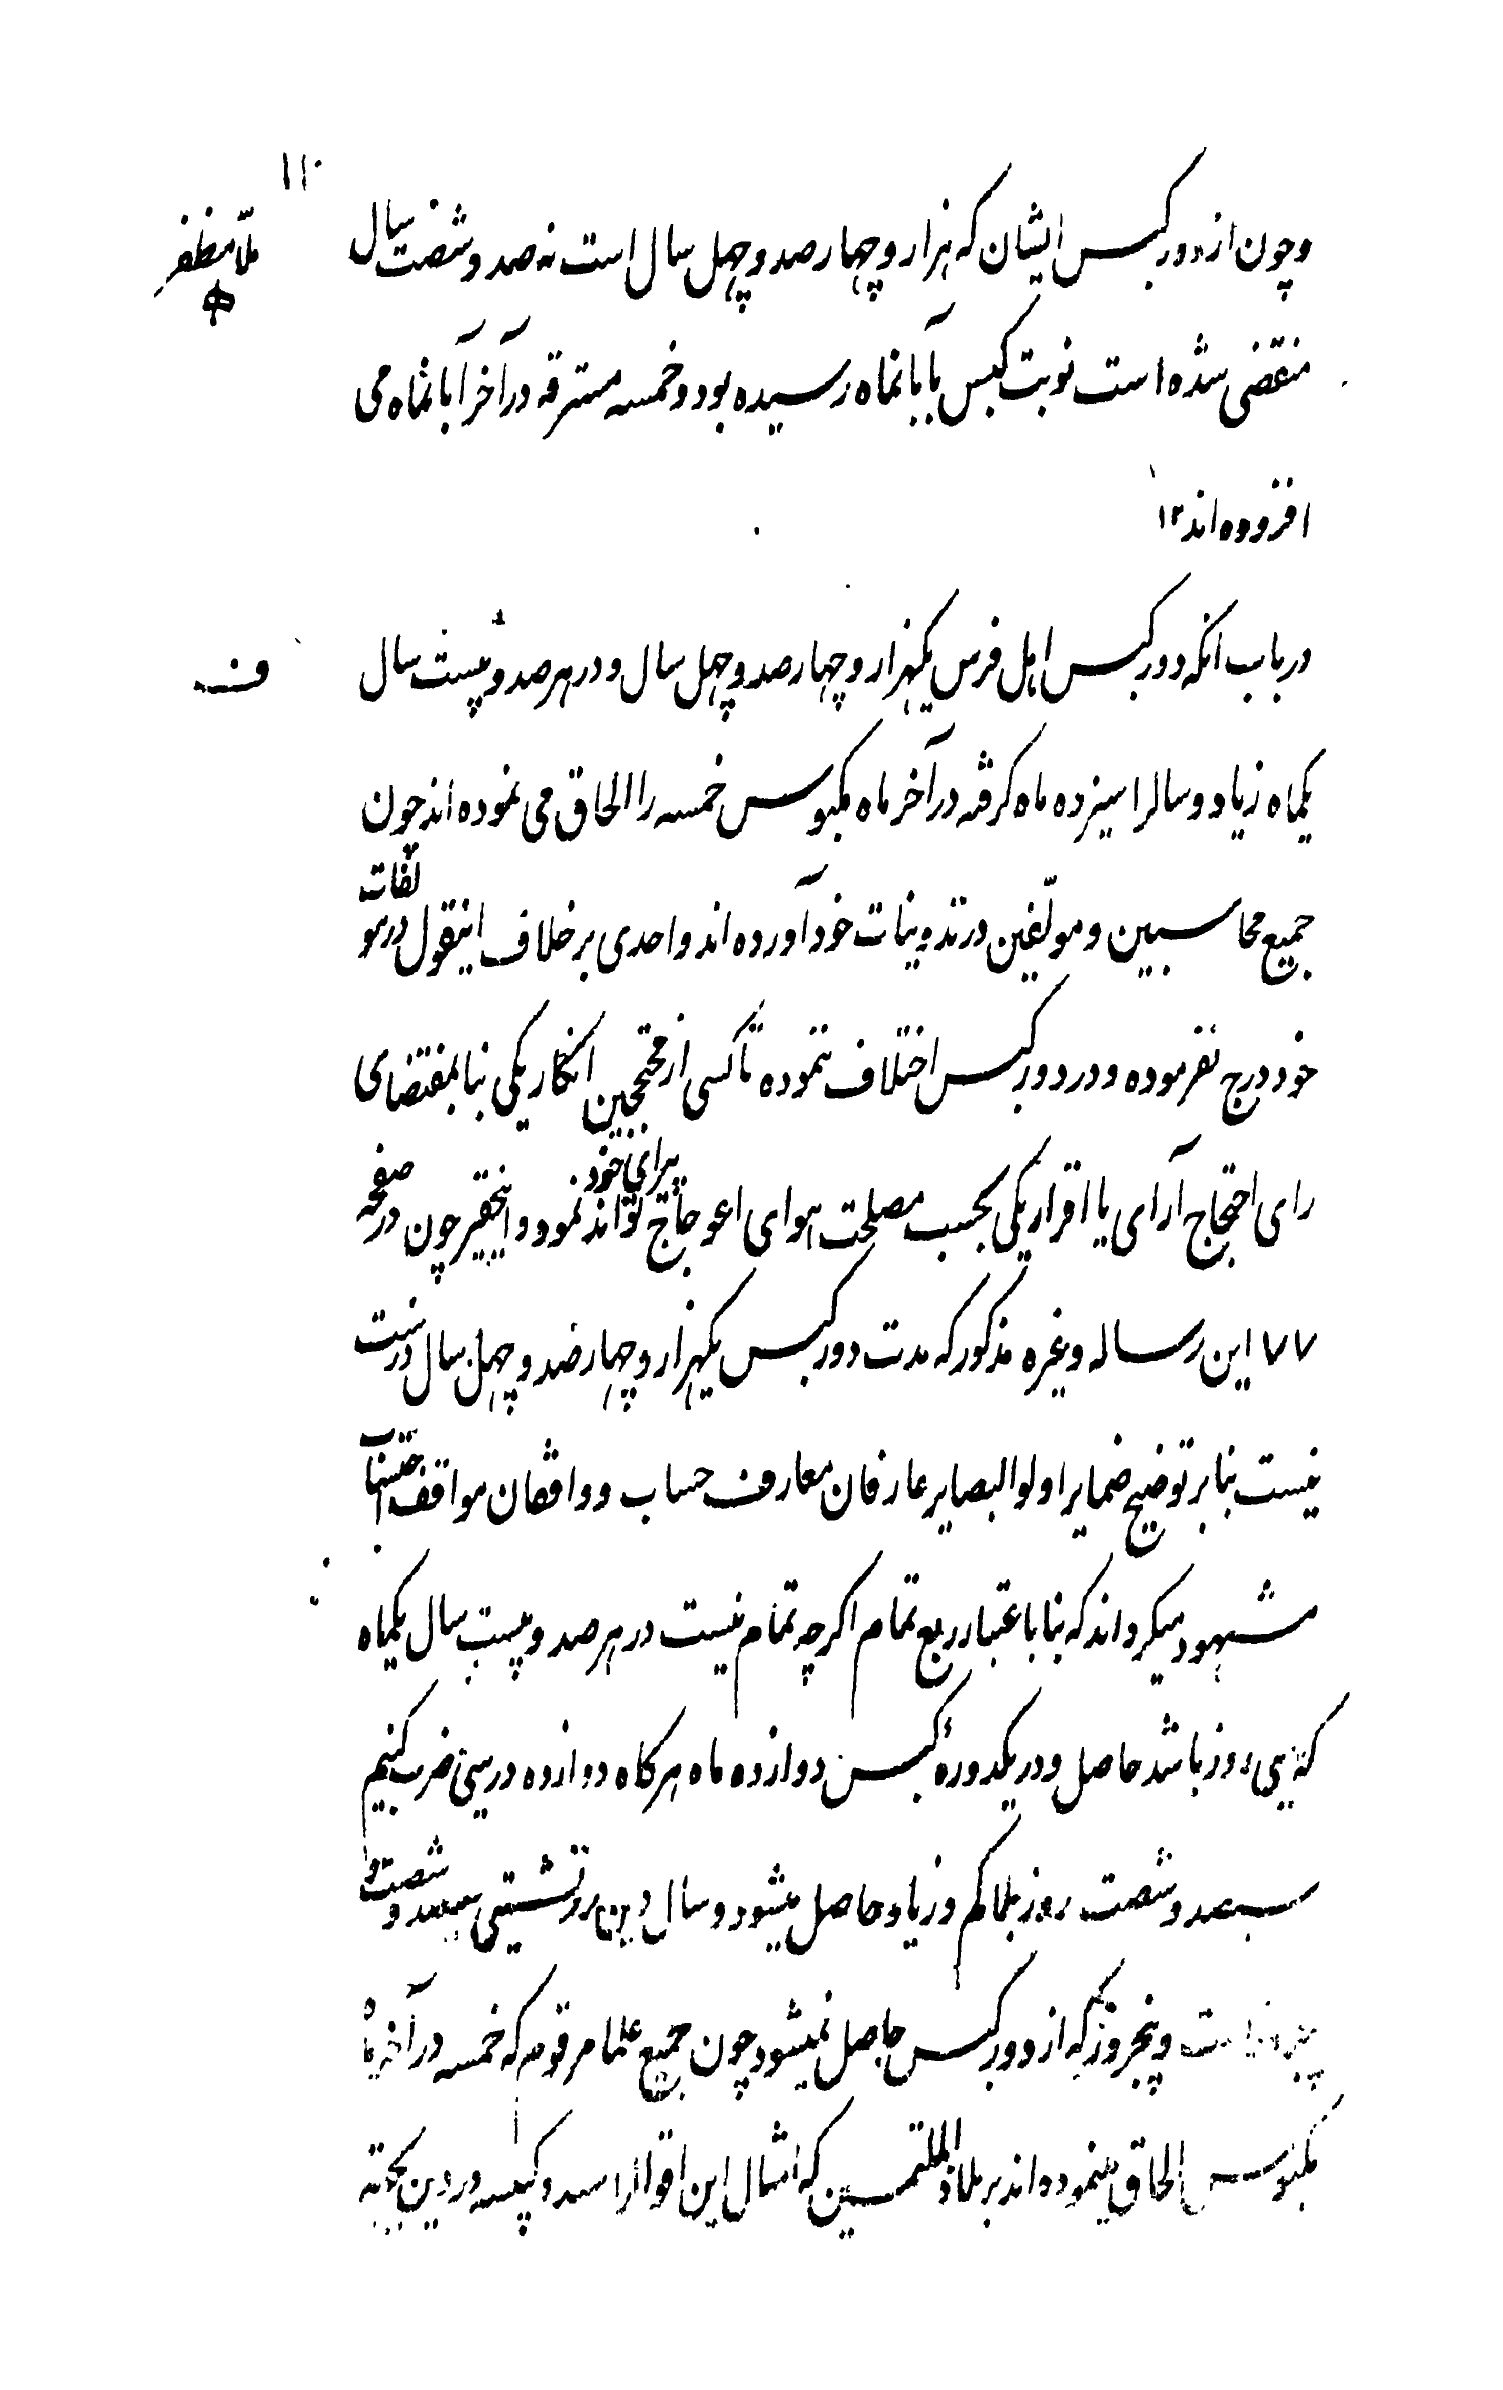 ۱۱۰
وچون از دور کبس ایشان که هزار و چهار صد و چهل سال است نه صد و شصت سال
ملا مظفر
منقضی شده است نوبت کبس بآبانماه رسیده بود و خمسه مسترقه در آخر آبانماه می
افزوده اند ۱۲
در باب انکه دور کبس اهل فرس یکهزار و چهار صد و چهل سال و در هر صد و بیست سال
ف
یکماه زیاد و سالرا سیزده ماه کرفته در آخر ماه مکبوس خمسه را الحاق می نموده اند چون
جمیع محاسبین و مولّفین در تدوینات خود آورده اند واحدی بر خلاف اینقول در مولفات
خود درج نفرموده و در دور کبس اختلاف ننموده تا کسی از محتجین انکار یکی بنا بمقتضای
رای احتجاج آرای یا اقرار یکی بحسب مصلحت هوای اعوجاج پیرای خود تواند نمود و اینحقیر چون در صفحه
۷۷ این رساله و غیره مذکور که مدت دور کبس یکهزار و چهار صد و چهل سال درست
نیست بنا بر توضیح ضمایر اولوالبصایر عارفان معارف حساب و واقفان مواقف احتساب
مشهود میکرداند که بنا باعتبار ربع تمام اکرچه تمام نیست در هر صد و بیست سال یکماه
که سی روز باشد حاصل و در یکدورهٔ کبس دوازده ماه هرکاه دوازده در سی ضرب کنیم
سیصد و شصت روز بلاکم و زیاد حاصل میشود و سال دین زرتشتی سیصد و شصت و
پنجروز است و پنجروز که از دور کبس حاصل نمیشود چون جمیع علما مرقومه که خمسه در آخر ماه
مکبوس الحاق مینموده اند بر ملاذ الملتمسین که امثال این اقوالرا سند کبیسه در دین بحجته